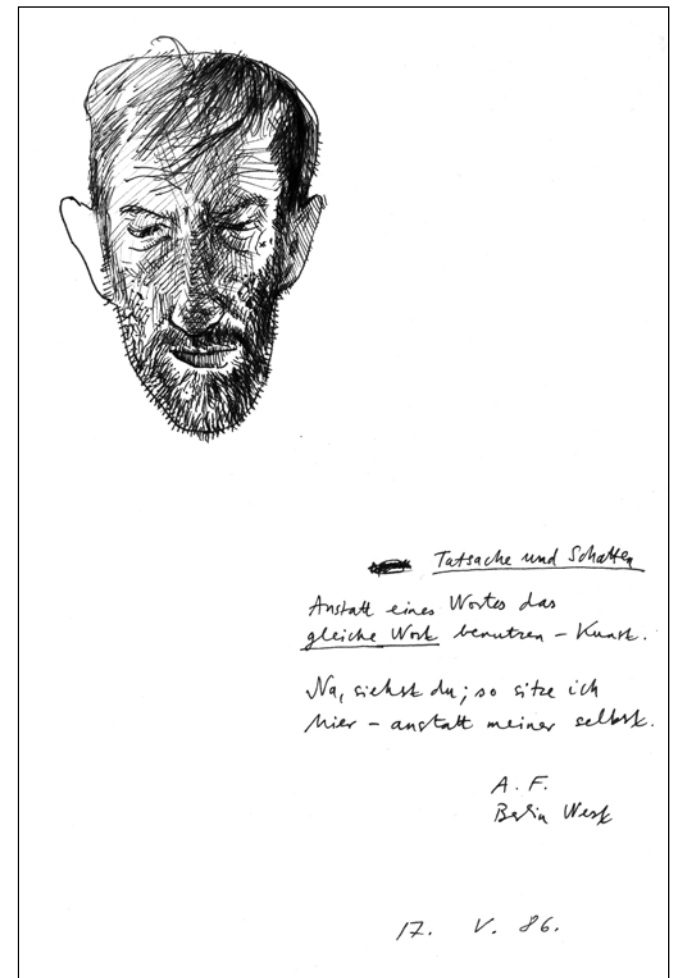 Tatsache und Schatten
Anstatt eines Wortes das
gleiche Wort benutzen – Kunst.
Na, siehst du; so sitze ich
hier – anstatt meiner selbst.
A. F.
Berlin West
17. V. 86.